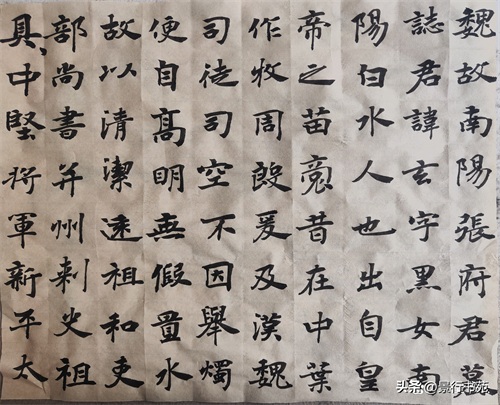 魏故南陽張府君墓
誌君諱玄字黑女南
陽白水人也出自皇
帝之苗裔昔在中葉
作牧周殷爰及漢魏
司徒司空不因舉燭
便自高明無假置水
故以清潔遠祖和吏
部尚書并州刺史祖
具中堅將軍新平太
头条 @景行书苑